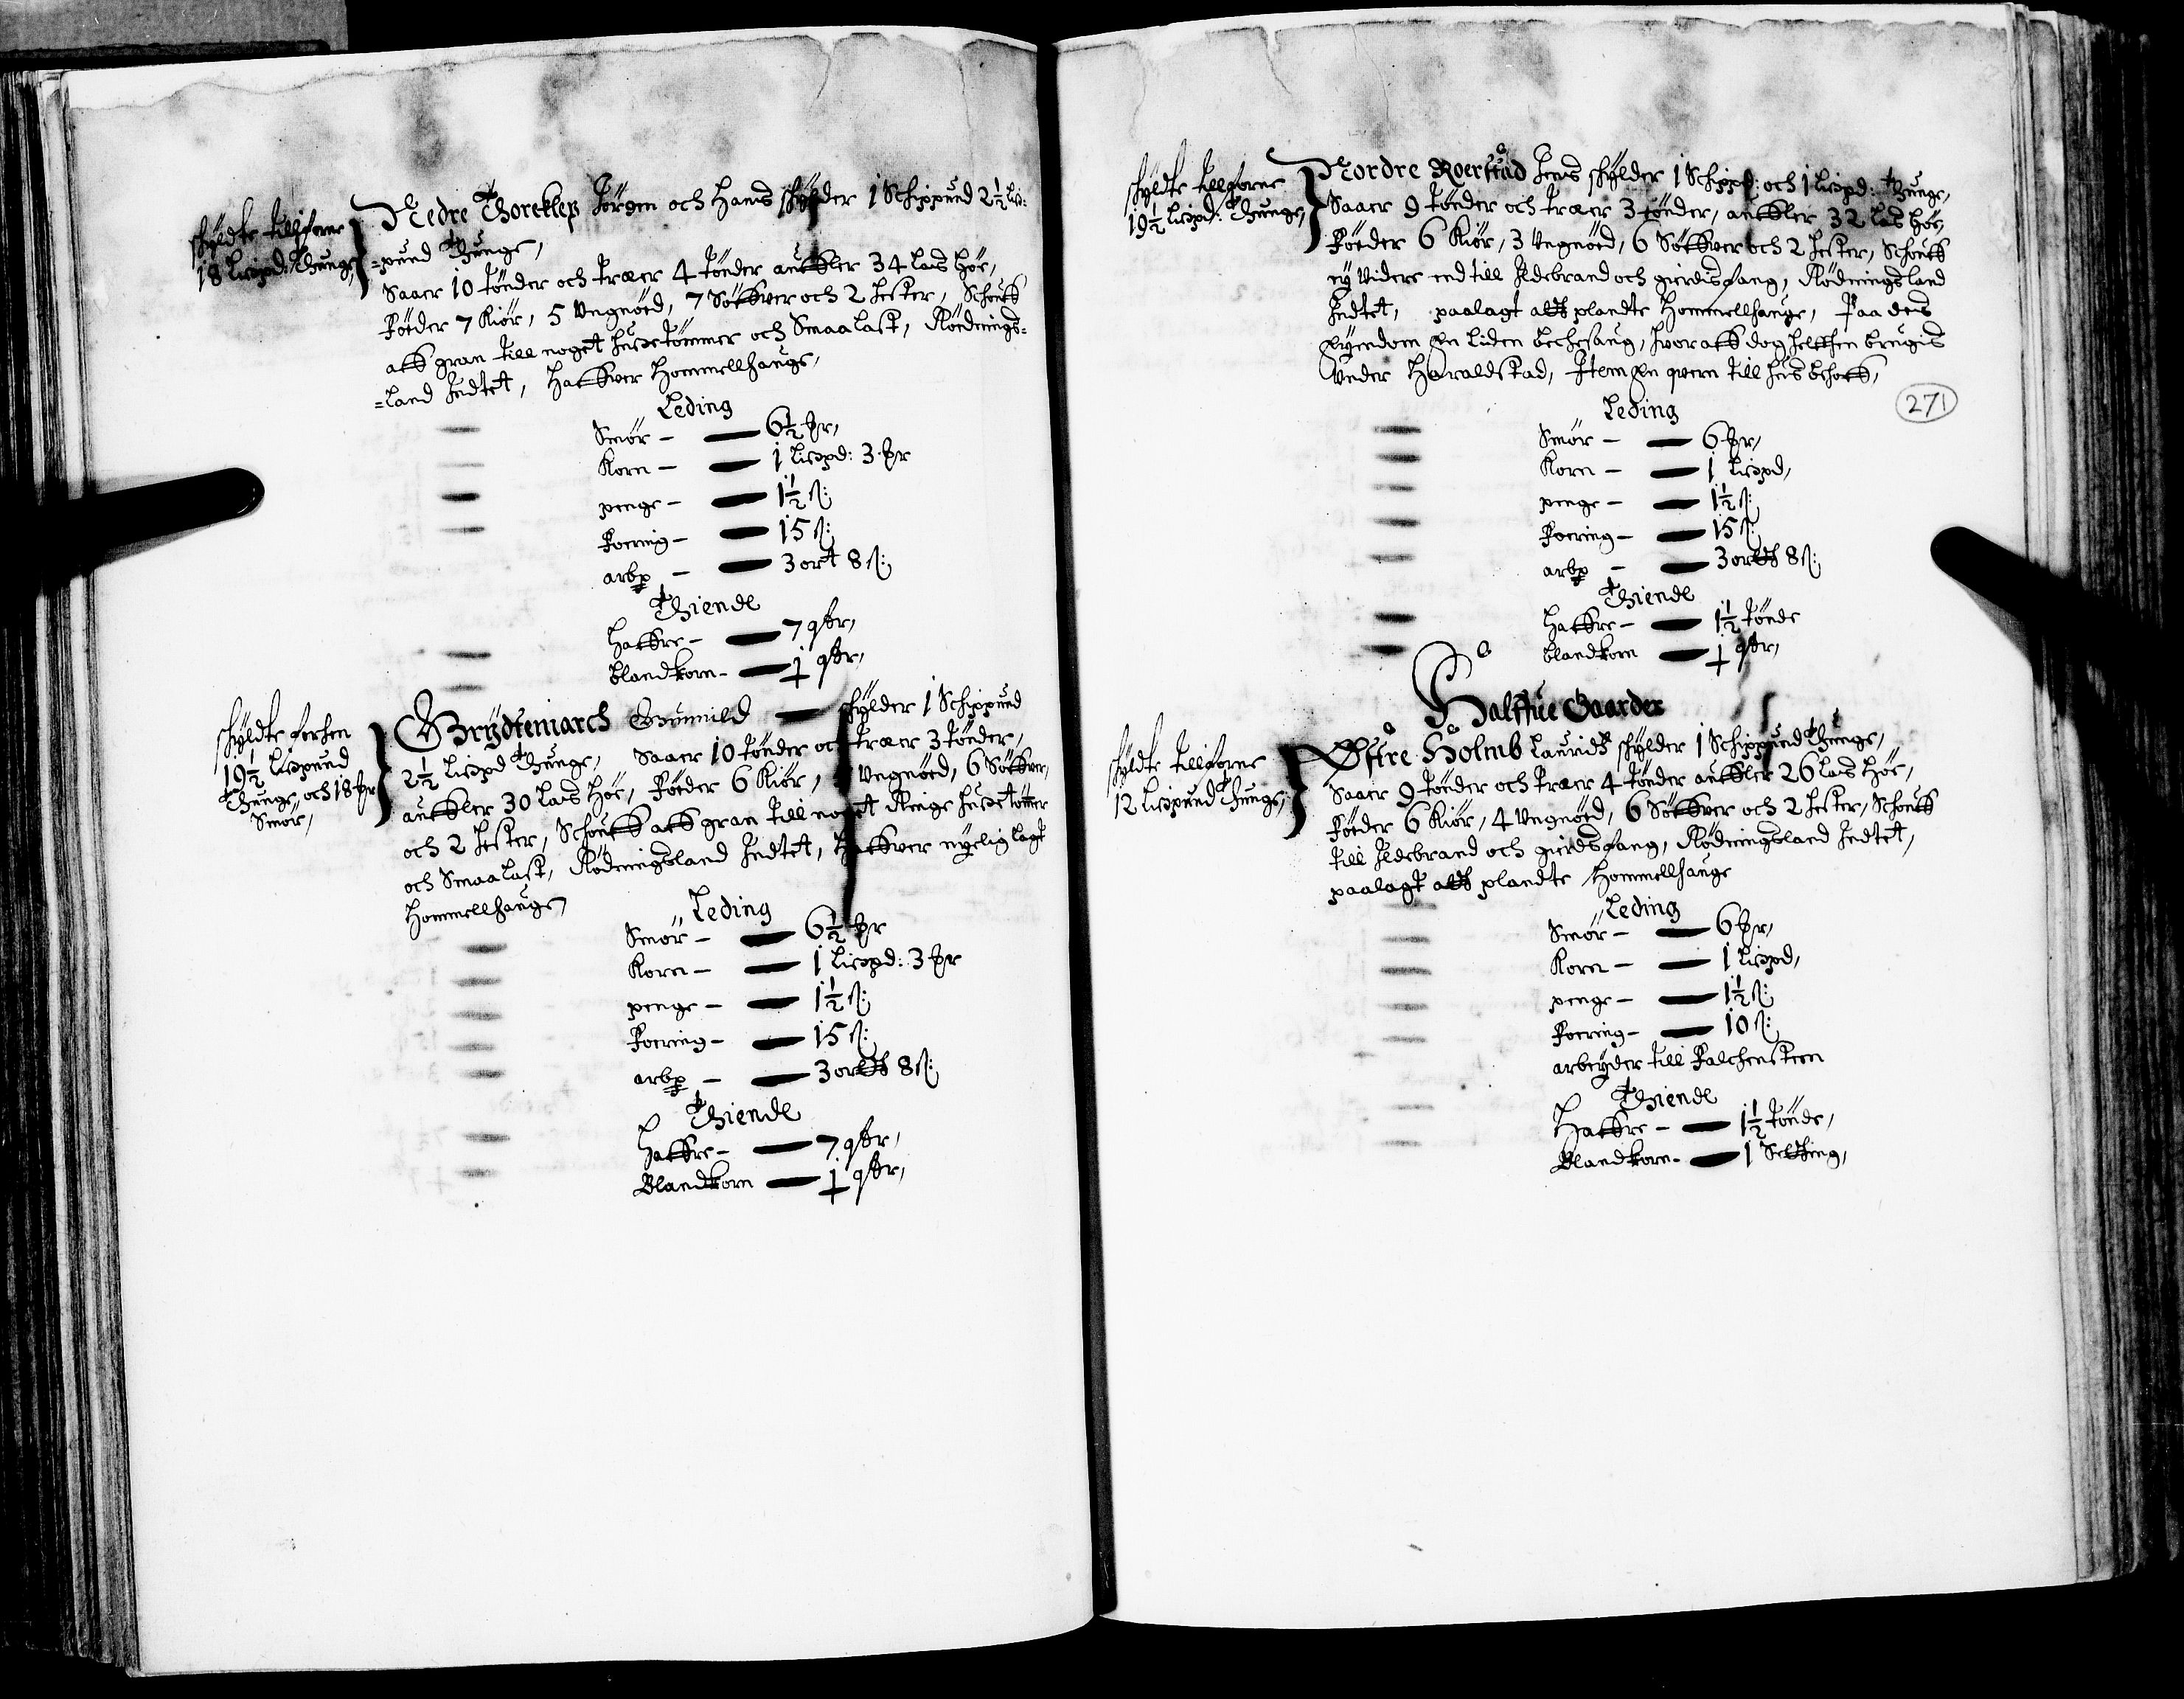 schÿldte tillforne
18 Lisspd: Thunge,
Nedre Thoreklep Jörgen och Hans schÿlder 1 Schippund 2½ Lis:
=pund Thunge,
Saaer 10 tönder och træer 4 tönder auffler 34 Las Höe,
Föeder 7 Kiör, 5 Ungnöed, 7 Söffver och 2 Hester, Schouff
aff gran till noget Husetömmer och Smaalast, Rödnings=
=land Indtet, Haffver Hommellhauge,
Leding
Smör — 6½ ℔r,
Korn — 1 Lisspd: 3 ℔r
penge — 1½ ß:
Foering — 15 ß:
arbp — 3 ort 8 ß:
Thiende
Haffre — 7 qtr,
blandkorn — ½ qtr,
schÿldte forhen
19½ Lisspund
Thunge och 18 ℔r
Smör,
Grÿdtemarch Gunnild — schÿlder 1 Schippund
2½ Lisspd Thunge, Saaer 10 tönder och træer 3 tönder,
auffler 30 Las Höe, Föeder 6 Kiör, Ungnöed, 6 Söffver,
och 2 Hester, Schouff aff gran till noget Ringe Husetömer
och Smaalast, Rödningsland Indtet, Haffver nyelig lagt
Hommellhauge,
Leding
Smör — 6½ ℔r
Korn — 1 Lisspd: 3 ℔r
penge — 1½ ß:
Foering — 15 ß:
arbp — 3 ordt 8 ß:
Thiende
Haffre — 7 qtr,
Blandkorn — ½ qtr,
schÿldte tillforne
19½ Lisspd: Thunge,
Nordre Roerstad Jens schÿlder 1 Schippd: och 1 Lisspd: Thunge,
Saaer 9 tönder och træer 3 tönder, auffler 32 Las Höe,
Föeder 6 Kiör, 3 Ungnöed, 6 Söffver och 2 Hester, Schouff
ey Videre end till Ildebrand och gierdisfang, Rödningsland
Indtet, paalagt att plandte Hommellhauge, Paa dens
Eyendom En liden bechesaug, hvoraff dog helften brugis
Under Haraldstad, Item En quern till Husbehoff,
271
Leding
Smör — 6 ℔r,
Korn — 1 Lisspd,
penge — 1½ ß:
Foering — 15 ß:
arbp — 3 ordt 8 ß:
Thiende
Haffre — 1½ tönde
blandkorn — ½ qtr,
Halffue Gaarder
schÿldte tillforne
12 Lisspund Thunge,
Østre Holmb Lauridtz schÿlder 1 Schippund Thunge,
Saaer 9 tönder och træer 4 tönder auffler 26 Las Höe,
Föeder 6 Kiör, 4 Ungnöed, 6 Söffver och 2 Hester, Schouff
till Ildebrand och gierdsfang, Rödningsland Indtet,
paalagt att plandte Hommellhauge
Leding
Smör — 6 ℔r,
Korn — 1 Lisspd,
penge — 1½ ß:
Foering — 10 ß:
arbeyder till Falchensteen
Thiende
Haffre — 1½ tönde,
Blandkorn — 1 Setting,